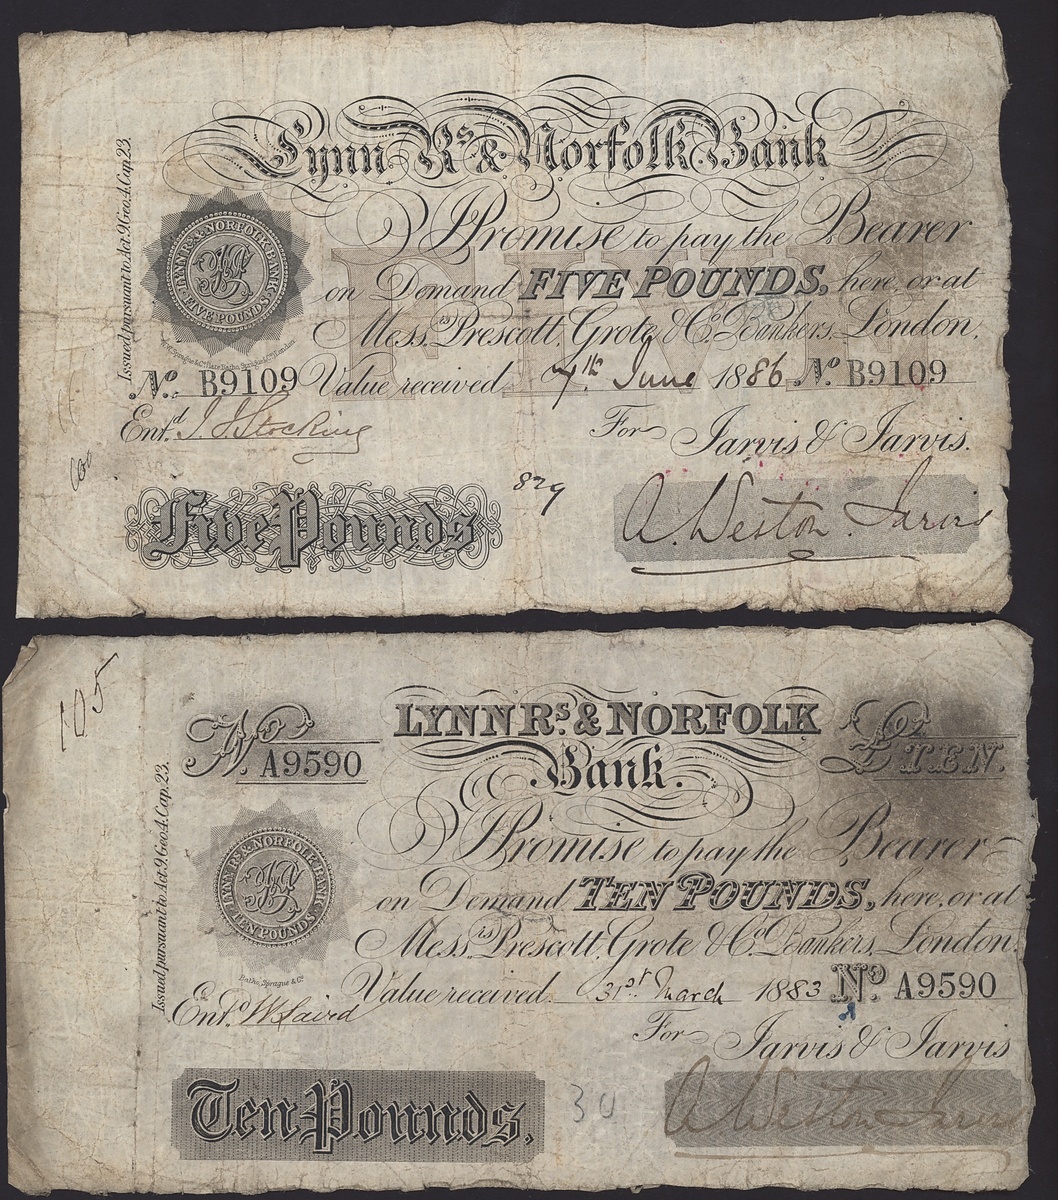 Lynn Rs & Norfolk Bank
Issued pursuant to Act 9. Geo 4. Cap 23.
I Promise to pay the Bearer
LYNN Rs & NORFOLK BANK
FIVE POUNDS
on Demand FIVE POUNDS, here, or at
Messrs Prescott, Grote & Co Bankers, London,
No. B9109 Value received 7th June 1886 No B9109
Entd J. J. Stocking For Jarvis & Jarvis.
829
Five Pounds A. Weston Jarvis
105
No. A9590
LYNN Rs & NORFOLK
Bank.
£ TEN.
Issued pursuant to Act 9. Geo 4. Cap. 23.
I Promise to pay the Bearer
LYNN Rs & NORFOLK BANK
TEN POUNDS
on Demand TEN POUNDS, here, or at
Messrs Prescott, Grote & Co Bankers, London.
Batho, Sprague & Co
Value received 31st March 1883 No A9590
Entd W Laird For Jarvis & Jarvis
Ten Pounds, 30 A Weston Jarvis